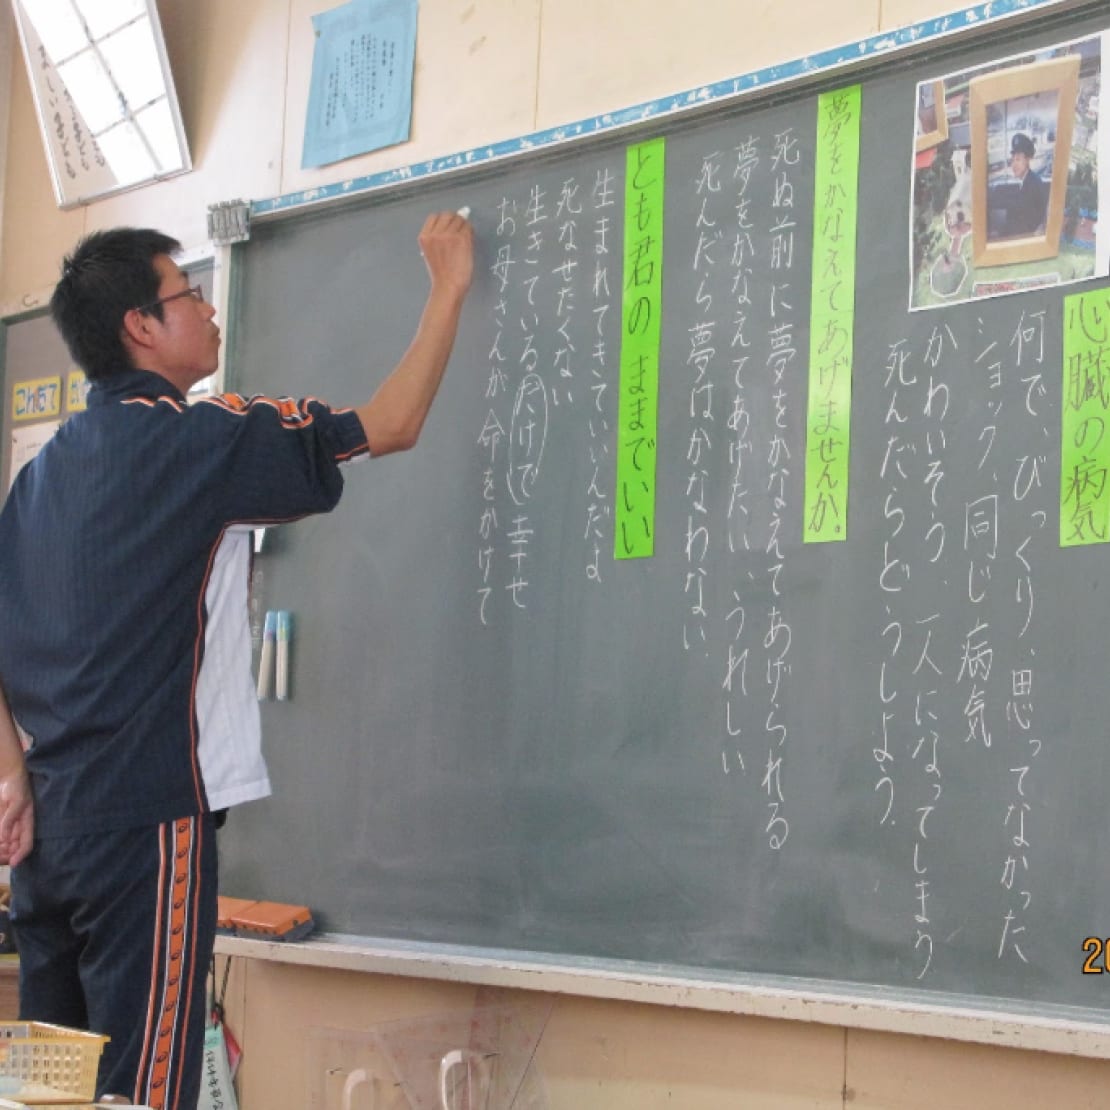 心臓の病気
何で、びっくり、思ってなかった
ショック、同じ病気
かわいそう、一人になってしまう
死んだらどうしよう。
夢をかなえてあげませんか。
死ぬ前に夢をかなえてあげられる
夢をかなえてあげたい、うれしい
死んだら夢はかなわない
とも君のままでいい
生まれてきていいんだよ
死なせたくない
生きているだけで幸せ
お母さんが命をかけて
こんだて
20